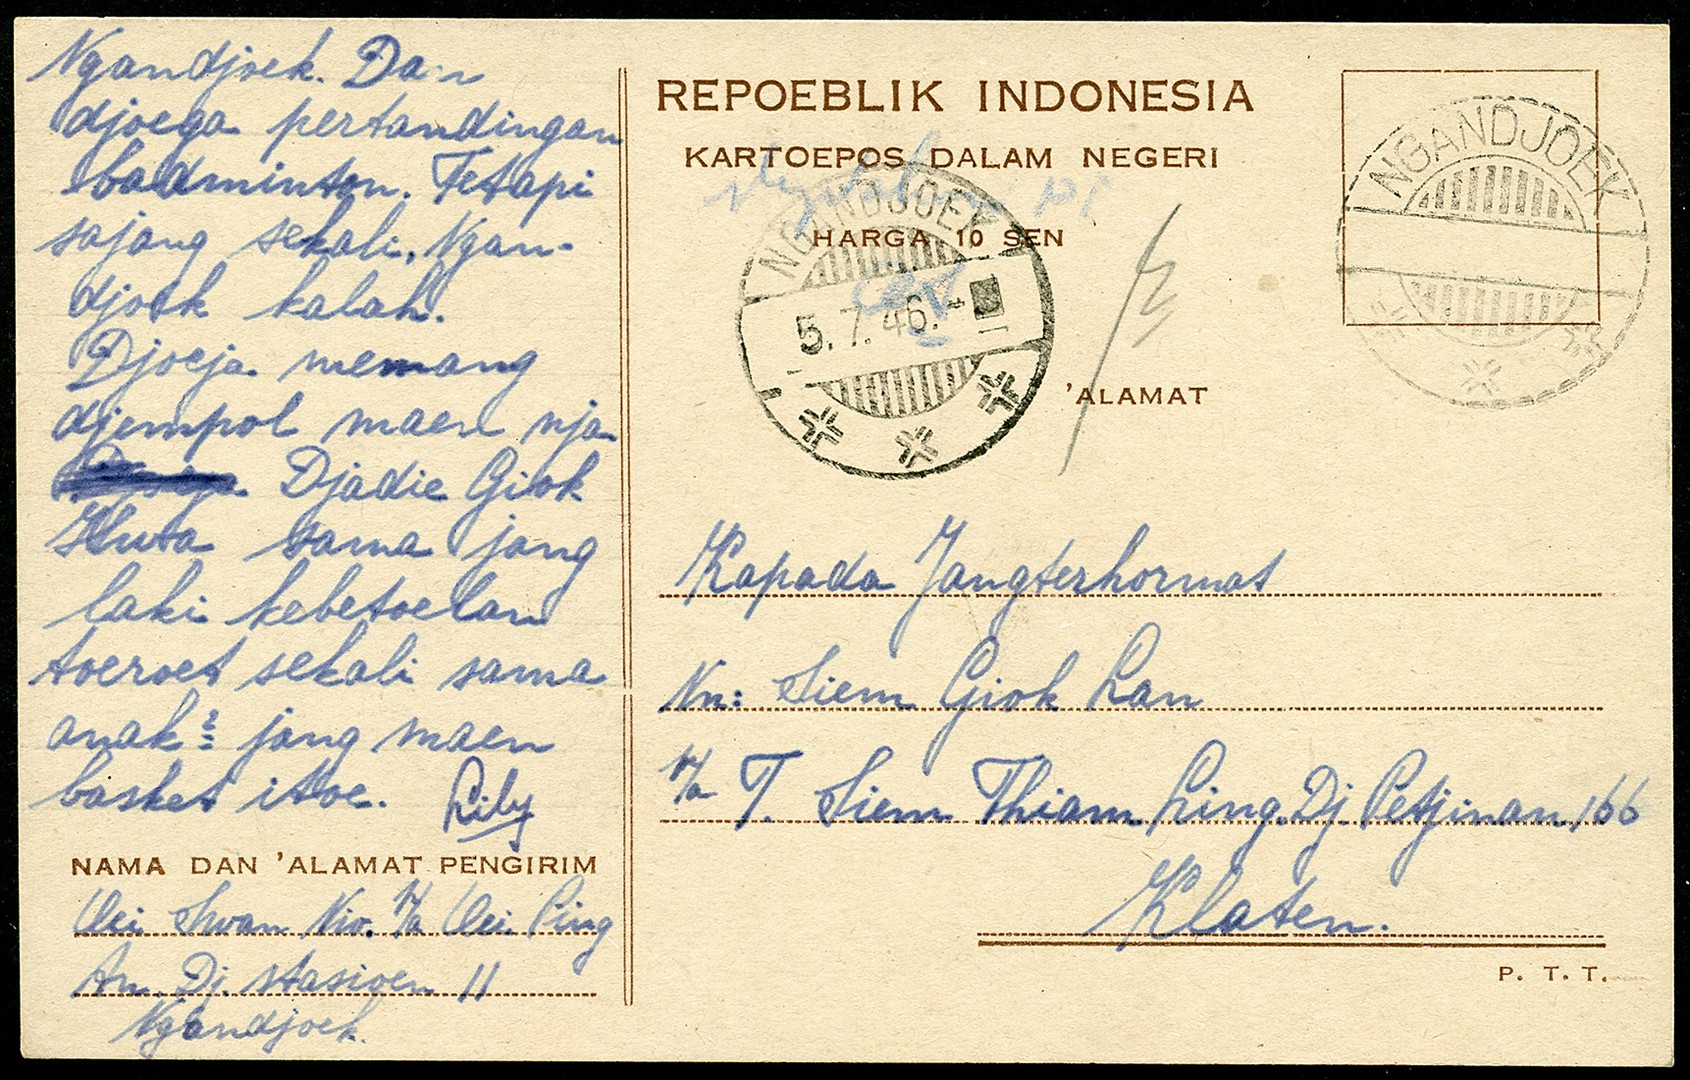 Ngandjoek. Dan
djoega pertandingan
badminton. Tetapi
sajang sekali, Ngan-
djoek kalah.
Djoeja memang
djempol maen nja
Djadie Giok
Hwa sama jang
laki kebetoelan
toeroet sekali sama
anak² jang maen
basket itoe. Lily
NAMA DAN 'ALAMAT PENGIRIM
Oei Swan Nio. p/a Oei Ping
An. Dj. stasioen 11
Ngandjoek.
REPOEBLIK INDONESIA
KARTOEPOS DALAM NEGERI
HARGA 10 SEN
NGANDJOEK
5.7.46.-
NGANDJOEK
'ALAMAT
Kapada Jangterhormat
Nn: Siem Giok Lan
p/a T. Siem Thiam Ling. Dj Petjinan 166
Klaten.
P. T. T.